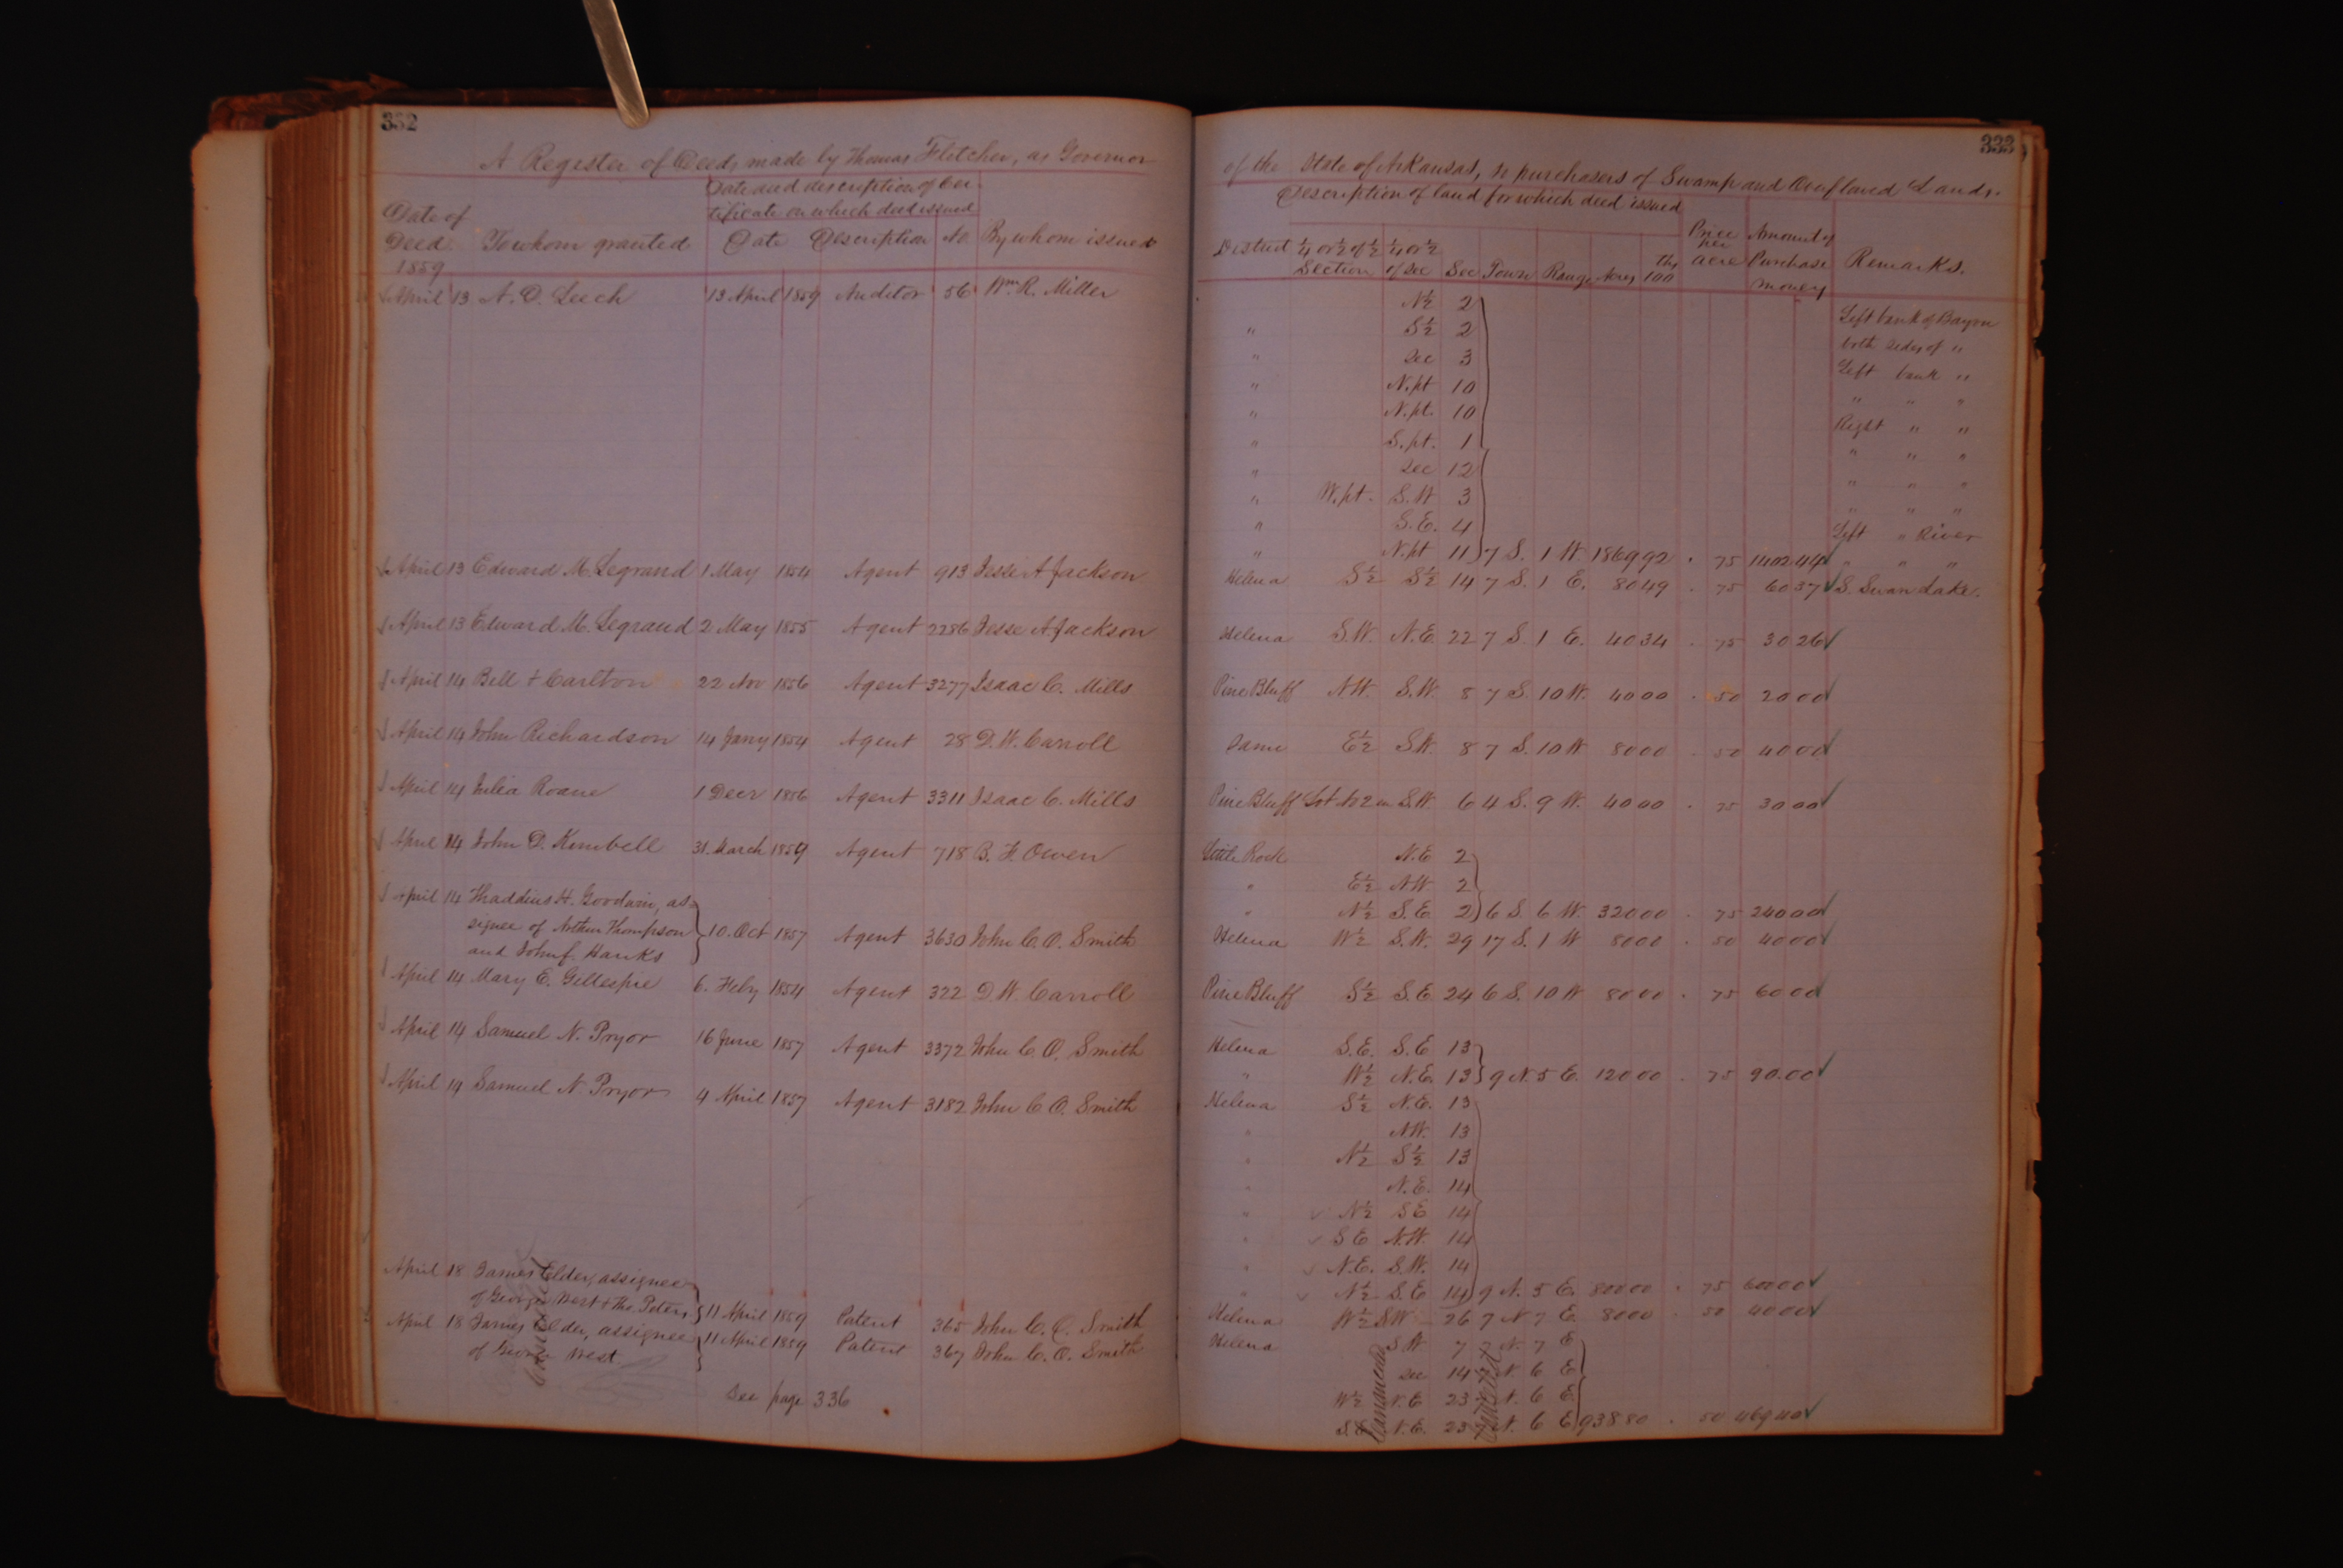 332
A Register of Deeds made by Thomas Fletcher, as Governor
Date and description of Cer-
tificate on which deed issued
Date of Deed To whom granted Date Description No By whom issued
1859
April 13 A. O. Leech 13 April 1859 Auditor 56 Wm. R. Miller
April 13 Edward M. Legrand 1 May 1854 Agent 913 Jesse A Jackson
April 13 Edward M. Legrand 2 May 1855 Agent 2286 Jesse A Jackson
April 14 Bell & Carlton 22 Nov 1856 Agent 3277 Isaac C. Mills
April 14 John Richardson 14 Jany 1854 Agent 28 D. W. Carroll
April 14 Julia Roane 1 Decr 1856 Agent 3311 Isaac C. Mills
April 14 John D. Kimbell 31. March 1859 Agent 718 B. F. Owen
April 14 Thaddius H. Goodwin, as-
signee of Arthur Thompson 10. Oct 1857 Agent 3630 John C. O. Smith
and John f. Hanks
April 14 Mary E. Gillespie 6. Feby 1854 Agent 322 D. W. Carroll
April 14 Samuel N. Pryor 16 June 1857 Agent 3372 John C. O. Smith
April 14 Samuel N. Pryor 4 April 1857 Agent 3182 John C O. Smith
April 18 James Elder, assignee
of George West & Tho. Peters 11 April 1859 Patent 365 John C. O. Smith
April 18 James Elder, assignee 11 April 1859 Patent 367 John C. O. Smith
of George West.
See page 336
333
of the State of Arkansas, to purchasers of Swamp and Overflowed Lands.
Description of land for which deed issued
District ¼ or ½ of ½ Section ¼ or ½ of Sec Sec Town Range Acres 100 ths Price per acre Amount of Purchase money Remarks.
N½ 2 Left bank of Bayou
" S½ 2 both sides of "
" Sec 3 Left bank "
" N. pt 10 " " "
" N. pt. 10 Right " "
" S. pt. 1 " " "
" Sec 12 " " "
" W. pt. S. W 3 " " "
" S. E. 4 Left " River
" N. pt 11 7 S. 1 W 1869 92 . 75 1402 44 " " "
Helena S½ S½ 14 7 S. 1 E. 80 49 . 75 60 37 S. Swan Lake.
Helena S. W. N. E 22 7 S. 1 E. 40 34 . 75 30 26
Pine Bluff N W. S. W. 8 7 S. 10 W. 40 00 . 50 20 00
Same E½ S. W. 8 7 S. 10 W 80 00 . 50 40 00
Pine Bluff Lot No 2 in S. W 6 4 S. 9 W. 40 00 . 75 30 00
Little Rock N. E 2
" E½ N W 2
" N½ S. E. 2 6 S. 6 W. 320 00 . 75 240 00
Helena W½ S. W. 29 17 S. 1 W 80 00 . 50 40 00
Pine Bluff S½ S. E 24 6 S. 10 W 80 00 . 75 60 00
Helena S. E. S. E 13
" W½ N. E. 13 9 N. 5 E. 120 00 . 75 90.00
Helena S½ N. E. 13
" N W. 13
" N½ S½ 13
" N. E. 14
" N½ S E 14
" S E N. W. 14
" N. E. S. W. 14
" N½ S. E 14 9 N. 5 E. 800 00 . 75 600 00
Helena W½ S W 26 7 N 7 E. 80 00 . 50 40 00
Helena S W 7 7 N. 7 E
Sec 14 N. 6 E
W½ N. E 23 N. 6 E
S E N. E. 23 N. 6 E 938 80 . 50 469 40